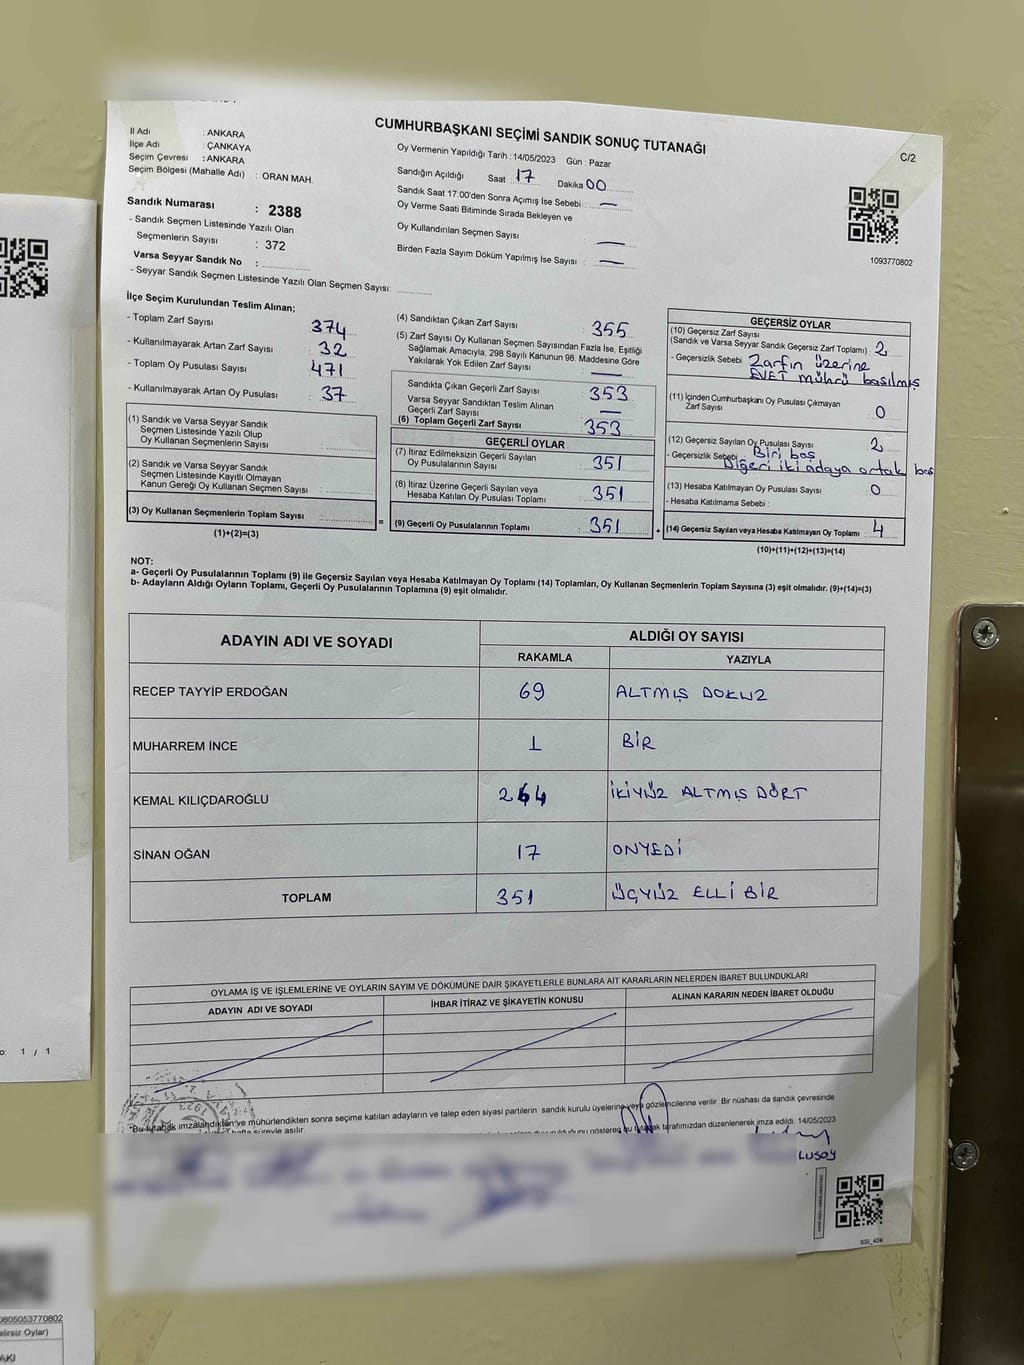 CUMHURBAŞKANI SEÇİMİ SANDIK SONUÇ TUTANAĞI
C/2
İl Adı : ANKARA
İlçe Adı : ÇANKAYA
Seçim Çevresi : ANKARA
Seçim Bölgesi (Mahalle Adı) : ORAN MAH.
Sandık Numarası : 2388
- Sandık Seçmen Listesinde Yazılı Olan
Seçmenlerin Sayısı : 372
Varsa Seyyar Sandık No :
- Seyyar Sandık Seçmen Listesinde Yazılı Olan Seçmen Sayısı:
Oy Vermenin Yapıldığı Tarih :14/05/2023 Gün : Pazar
Sandığın Açıldığı Saat : 17 Dakika 00
Sandık Saat 17.00'den Sonra Açılmış İse Sebebi : —
Oy Verme Saati Bitiminde Sırada Bekleyen ve
Oy Kullandırılan Seçmen Sayısı : —
Birden Fazla Sayım Döküm Yapılmış İse Sayısı : —
1093770802
İlçe Seçim Kurulundan Teslim Alınan;
- Toplam Zarf Sayısı : 374
- Kullanılmayarak Artan Zarf Sayısı : 32
- Toplam Oy Pusulası Sayısı : 471
- Kullanılmayarak Artan Oy Pusulası : 37
(1) Sandık ve Varsa Seyyar Sandık
Seçmen Listesinde Yazılı Olup
Oy Kullanan Seçmenlerin Sayısı :
(2) Sandık ve Varsa Seyyar Sandık
Seçmen Listesinde Kayıtlı Olmayan
Kanun Gereği Oy Kullanan Seçmen Sayısı :
(3) Oy Kullanan Seçmenlerin Toplam Sayısı :
(1)+(2)=(3)
=
(4) Sandıktan Çıkan Zarf Sayısı : 355
(5) Zarf Sayısı Oy Kullanan Seçmen Sayısından Fazla İse, Eşitliği
Sağlamak Amacıyla, 298 Sayılı Kanunun 98. Maddesine Göre
Yakılarak Yok Edilen Zarf Sayısı : —
Sandıkta Çıkan Geçerli Zarf Sayısı : 353
Varsa Seyyar Sandıktan Teslim Alınan
Geçerli Zarf Sayısı : —
(6) Toplam Geçerli Zarf Sayısı : 353
GEÇERLİ OYLAR
(7) İtiraz Edilmeksizin Geçerli Sayılan
Oy Pusulalarının Sayısı : 351
(8) İtiraz Üzerine Geçerli Sayılan veya
Hesaba Katılan Oy Pusulası Toplamı : 351
(9) Geçerli Oy Pusulalarının Toplamı : 351
+
GEÇERSİZ OYLAR
(10) Geçersiz Zarf Sayısı
(Sandık ve Varsa Seyyar Sandık Geçersiz Zarf Toplamı) : 2
- Geçersizlik Sebebi : Zarfın üzerine
EVET mührü basılmış
(11) İçinden Cumhurbaşkanı Oy Pusulası Çıkmayan
Zarf Sayısı : 0
(12) Geçersiz Sayılan Oy Pusulası Sayısı : 2
- Geçersizlik Sebebi : Biri boş
Diğeri iki adaya ortak bas
(13) Hesaba Katılmayan Oy Pusulası Sayısı : 0
- Hesaba Katılmama Sebebi :
(14) Geçersiz Sayılan veya Hesaba Katılmayan Oy Toplamı : 4
(10)+(11)+(12)+(13)=(14)
NOT:
a- Geçerli Oy Pusulalarının Toplamı (9) ile Geçersiz Sayılan veya Hesaba Katılmayan Oy Toplamı (14) Toplamları, Oy Kullanan Seçmenlerin Toplam Sayısına (3) eşit olmalıdır. (9)+(14)=(3)
b- Adayların Aldığı Oyların Toplamı, Geçerli Oy Pusulalarının Toplamına (9) eşit olmalıdır.
ADAYIN ADI VE SOYADI ALDIĞI OY SAYISI
RAKAMLA YAZIYLA
RECEP TAYYİP ERDOĞAN 69 ALTMIŞ DOKUZ
MUHARREM İNCE 1 BİR
KEMAL KILIÇDAROĞLU 264 İKİYÜZ ALTMIŞ DÖRT
SİNAN OĞAN 17 ONYEDİ
TOPLAM 351 ÜÇYÜZ ELLİ BİR
OYLAMA İŞ VE İŞLEMLERİNE VE OYLARIN SAYIM VE DÖKÜMÜNE DAİR ŞİKAYETLERLE BUNLARA AİT KARARLARIN NELERDEN İBARET BULUNDUKLARI
ADAYIN ADI VE SOYADI İHBAR İTİRAZ VE ŞİKAYETİN KONUSU ALINAN KARARIN NEDEN İBARET OLDUĞU
*Bu tutanak imzalandıktan ve mühürlendikten sonra seçime katılan adayların ve talep eden siyasi partilerin sandık kurulu üyelerine veya gözlemcilerine verilir. Bir nüshası da sandık çevresinde
hafta süreyle asılır.
olduğunu gösteren bu tutanak tarafımızdan düzenlenerek imza edildi. 14/05/2023
LUSOY
SSI_404
o: 1 / 1
0805053770802
elirsiz Oylar)
AKI